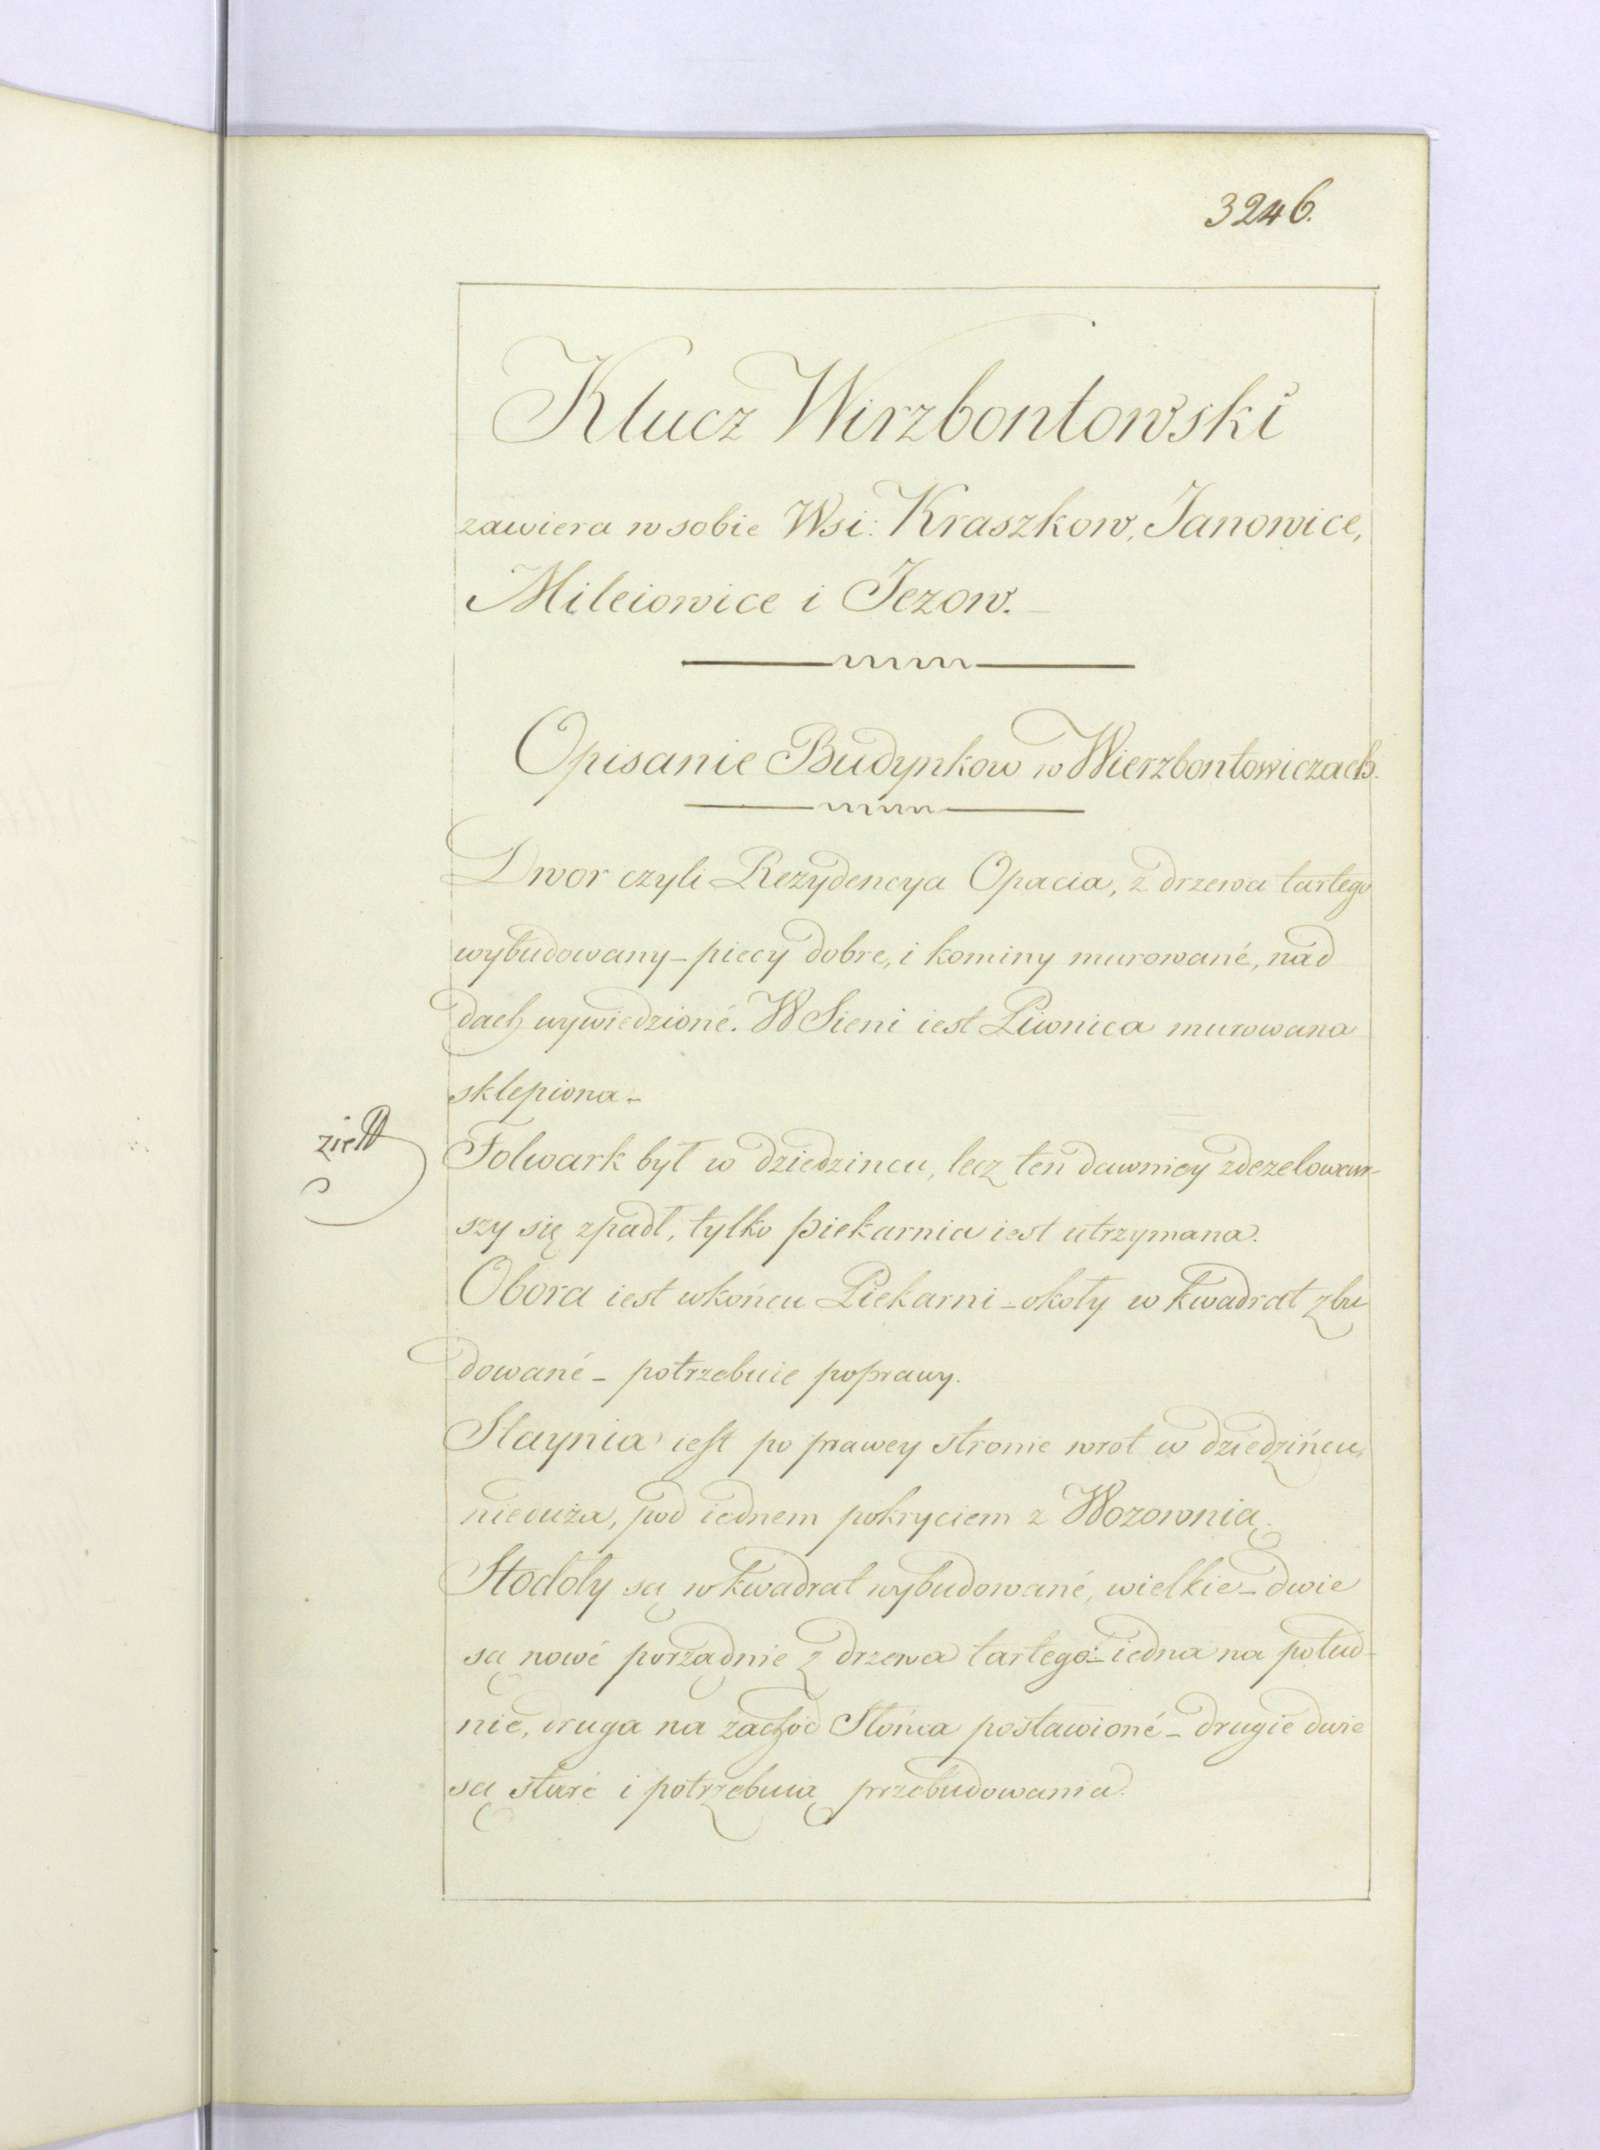 3246.
Klucz Wirzbontowski
zawiera w sobie Wsi: Kraszkow, Janowice,
Mileiowice i Jezow.
Opisanie Budynkow w Wierzbontowiczach.
Dwor czyli Rezydencya Opacia, z drzewa tartego
wybudowany – piecy dobre, i kominy murowané, nad
dach wywiedzioné. W Sieni iest Piwnica murowana
sklepiona –
Folwark był w dziedzincu, lecz ten dawniey zdezelowaw-
szy się zpadł, tylko piekarnia iest utrzymana.
Obora iest wkońcu Piekarni – okoły w kwadrat zbu
dowané – potrzebuie poprawy.
Staynia iest po prawey stronie wrot w dziedzińcu,
nieduża, pod iednem pokryciem z Wozownią.
Stodoły są w kwadrat wybudowané, wielkie – dwie
są nowé porządnie z drzewa tartego: iedna na połud-
nie, druga na zachód Słońca postawioné – drugie dwie
są staré i potrzebuią przebudowania.